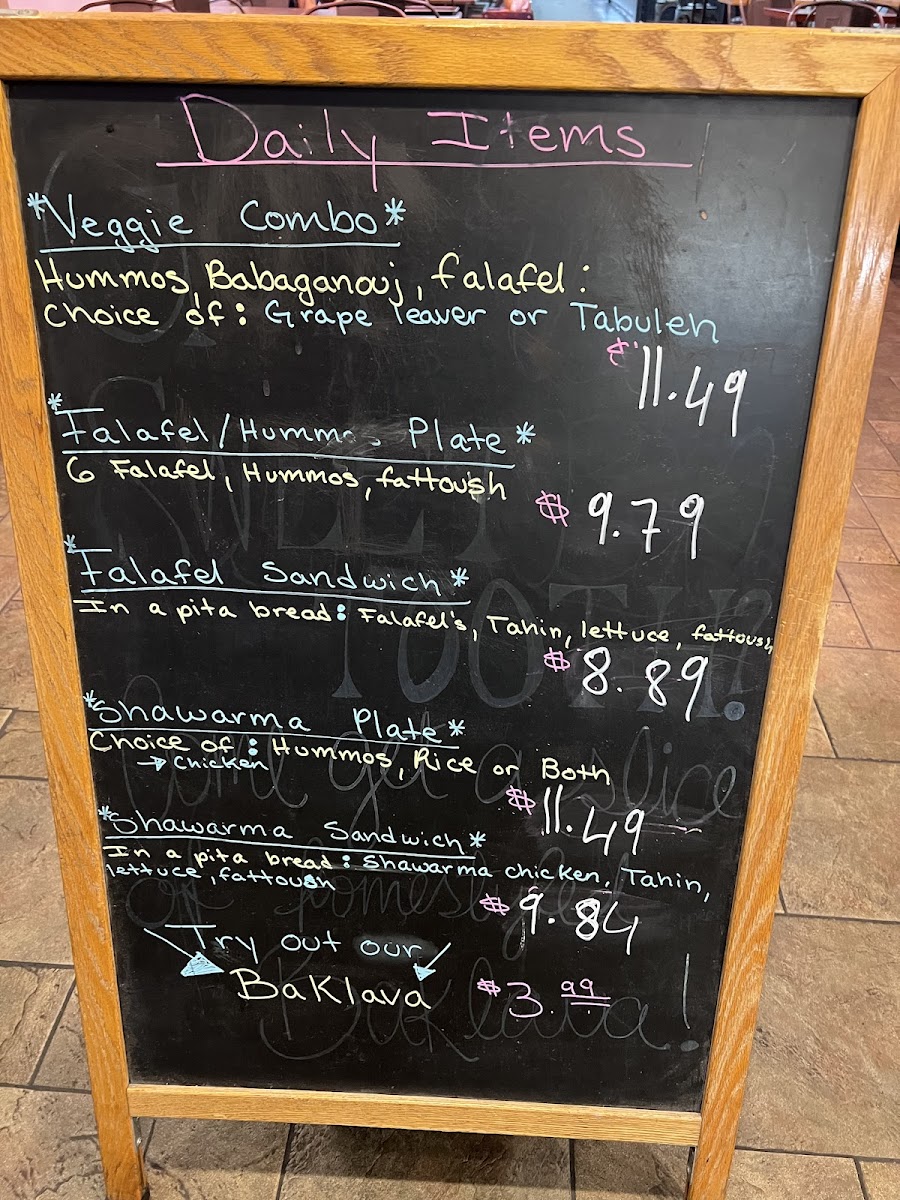 Daily Items
*Veggie Combo*
Hummos, Babaganouj, falafel:
Choice of: Grape leaver or Tabuleh
$11.49
*Falafel/Hummos Plate*
6 Falafel, Hummos, fattoush
$9.79
*Falafel Sandwich*
In a pita bread: Falafel's, Tahin, lettuce, fattoush
$8.89
*Shawarma Plate*
Choice of: Hummos, Rice or Both
→ Chicken
$11.49
*Shawarma Sandwich*
In a pita bread: Shawarma chicken, Tahin,
lettuce, fattoush
$9.84
Try out our
Baklava $3.99
SWEET
TOOTH?
get a slice
of homestyled
Baklava!